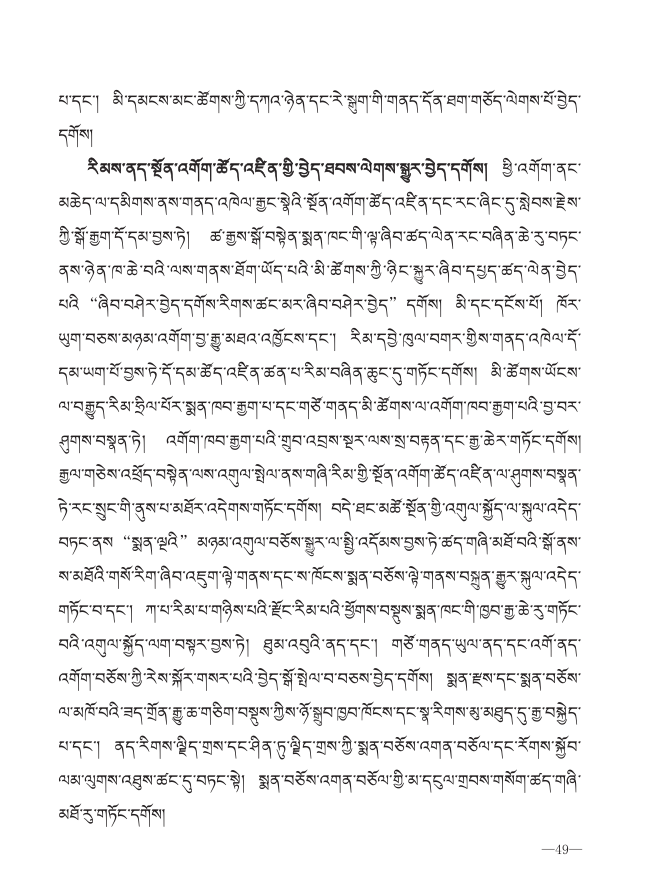 པ་དང་། མི་དམངས་མང་ཚོགས་ཀྱི་དཀའ་ཉེན་དང་རེ་སྒུག་གི་གནད་དོན་ཐག་གཅོད་ལེགས་པོ་བྱེད་
དགོས།
རིམས་ནད་སྔོན་འགོག་ཚོད་འཛིན་གྱི་བྱེད་ཐབས་ལེགས་སྒྱུར་བྱེད་དགོས། ཕྱི་འགོག་ནང་
མཆེད་ལ་དམིགས་ནས་གནད་འཁེལ་རྒྱུང་སྣེའི་སྔོན་འགོག་ཚོད་འཛིན་དང་རང་ཞིང་དུ་སླེབས་རྗེས་
ཀྱི་སྒོ་རྒྱག་དོ་དམ་བྱས་ཏེ། ཚ་རྒྱས་སྒོ་བསྟེན་སྨན་ཁང་གི་ལྟ་ཞིབ་ཚད་ལེན་རང་བཞིན་ཆེ་རུ་བཏང་
ནས་ཉེན་ཁ་ཆེ་བའི་ལས་གནས་ཐོག་ཡོད་པའི་མི་ཚོགས་ཀྱི་ཉིང་སྐྱུར་ཞིབ་དཔྱད་ཚད་ལེན་བྱེད་
པའི “ཞིབ་བཤེར་བྱེད་དགོས་རིགས་ཚང་མར་ཞིབ་བཤེར་བྱེད” དགོས། མི་དང་དངོས་པོ། ཁོར་
ཡུག་བཅས་མཉམ་འགོག་བྱ་རྒྱུ་མཐའ་འཁྱོངས་དང་། རིམ་དབྱེ་ཁུལ་བགར་གྱིས་གནད་འཁེལ་དོ་
དམ་ཡག་པོ་བྱས་ཏེ་དོ་དམ་ཚོད་འཛིན་ཚན་པ་རིམ་བཞིན་ཆུང་དུ་གཏོང་དགོས། མི་ཚོགས་ཡོངས་
ལ་བརྒྱུད་རིམ་ཧྲིལ་པོར་སྨན་ཁབ་རྒྱག་པ་དང་གཙོ་གནད་མི་ཚོགས་ལ་འགོག་ཁབ་རྒྱག་པའི་བྱ་བར་
ཤུགས་བསྣན་ཏེ། འགོག་ཁབ་རྒྱག་པའི་གྲུབ་འབྲས་སྔར་ལས་སྲ་བརྟན་དང་རྒྱ་ཆེར་གཏོང་དགོས།
རྒྱལ་གཅེས་འཕྲོད་བསྟེན་ལས་འགུལ་སྤེལ་ནས་གཞི་རིམ་གྱི་སྔོན་འགོག་ཚོད་འཛིན་ལ་ཤུགས་བསྣན་
ཏེ་རང་སྲུང་གི་ནུས་པ་མཐོར་འདེགས་གཏོང་དགོས། བདེ་ཐང་མཚོ་སྔོན་གྱི་འགུལ་སྐྱོད་ལ་སྐུལ་འདེད་
བཏང་ནས “སྨན་ལྔའི” མཉམ་འགུལ་བཅོས་སྒྱུར་ལ་སྤྱི་འདོམས་བྱས་ཏེ་ཚད་གཞི་མཐོ་བའི་སྒོ་ནས་
ས་མཐོའི་གསོ་རིག་ཞིབ་འཇུག་ལྟེ་གནས་དང་ས་ཁོངས་སྨན་བཅོས་ལྟེ་གནས་བསྐྲུན་རྒྱུར་སྐུལ་འདེད་
གཏོང་བ་དང་། ཀ་པ་རིམ་པ་གཉིས་པའི་རྫོང་རིམ་པའི་ཕྱོགས་བསྡུས་སྨན་ཁང་གི་ཁྱབ་རྒྱ་ཆེ་རུ་གཏོང་
བའི་འགུལ་སྐྱོད་ལག་བསྟར་བྱས་ཏེ། ཐུམ་འབུའི་ནད་དང་། གཙོ་གནད་ཡུལ་ནད་དང་འགོ་ནད་
འགོག་བཅོས་ཀྱི་རེས་སྐོར་གསར་པའི་བྱེད་སྒོ་སྤེལ་བ་བཅས་བྱེད་དགོས། སྨན་རྫས་དང་སྨན་བཅོས་
ལ་མཁོ་བའི་ཟད་གྲོན་རྒྱུ་ཆ་གཅིག་བསྡུས་ཀྱིས་ཉོ་སྒྲུབ་ཁྱབ་ཁོངས་དང་སྣ་རིགས་མུ་མཐུད་དུ་རྒྱ་བསྐྱེད་
པ་དང་། ནད་རིགས་ལྗིད་གྲས་དང་ཤིན་ཏུ་ལྗིད་གྲས་ཀྱི་སྨན་བཅོས་འགན་བཅོལ་དང་རོགས་སྐྱོབ་
ལམ་ལུགས་འཐུས་ཚང་དུ་བཏང་སྟེ། སྨན་བཅོས་འགན་བཅོལ་གྱི་མ་དངུལ་གྲབས་གསོག་ཚད་གཞི་
མཐོ་རུ་གཏོང་དགོས།
—49—